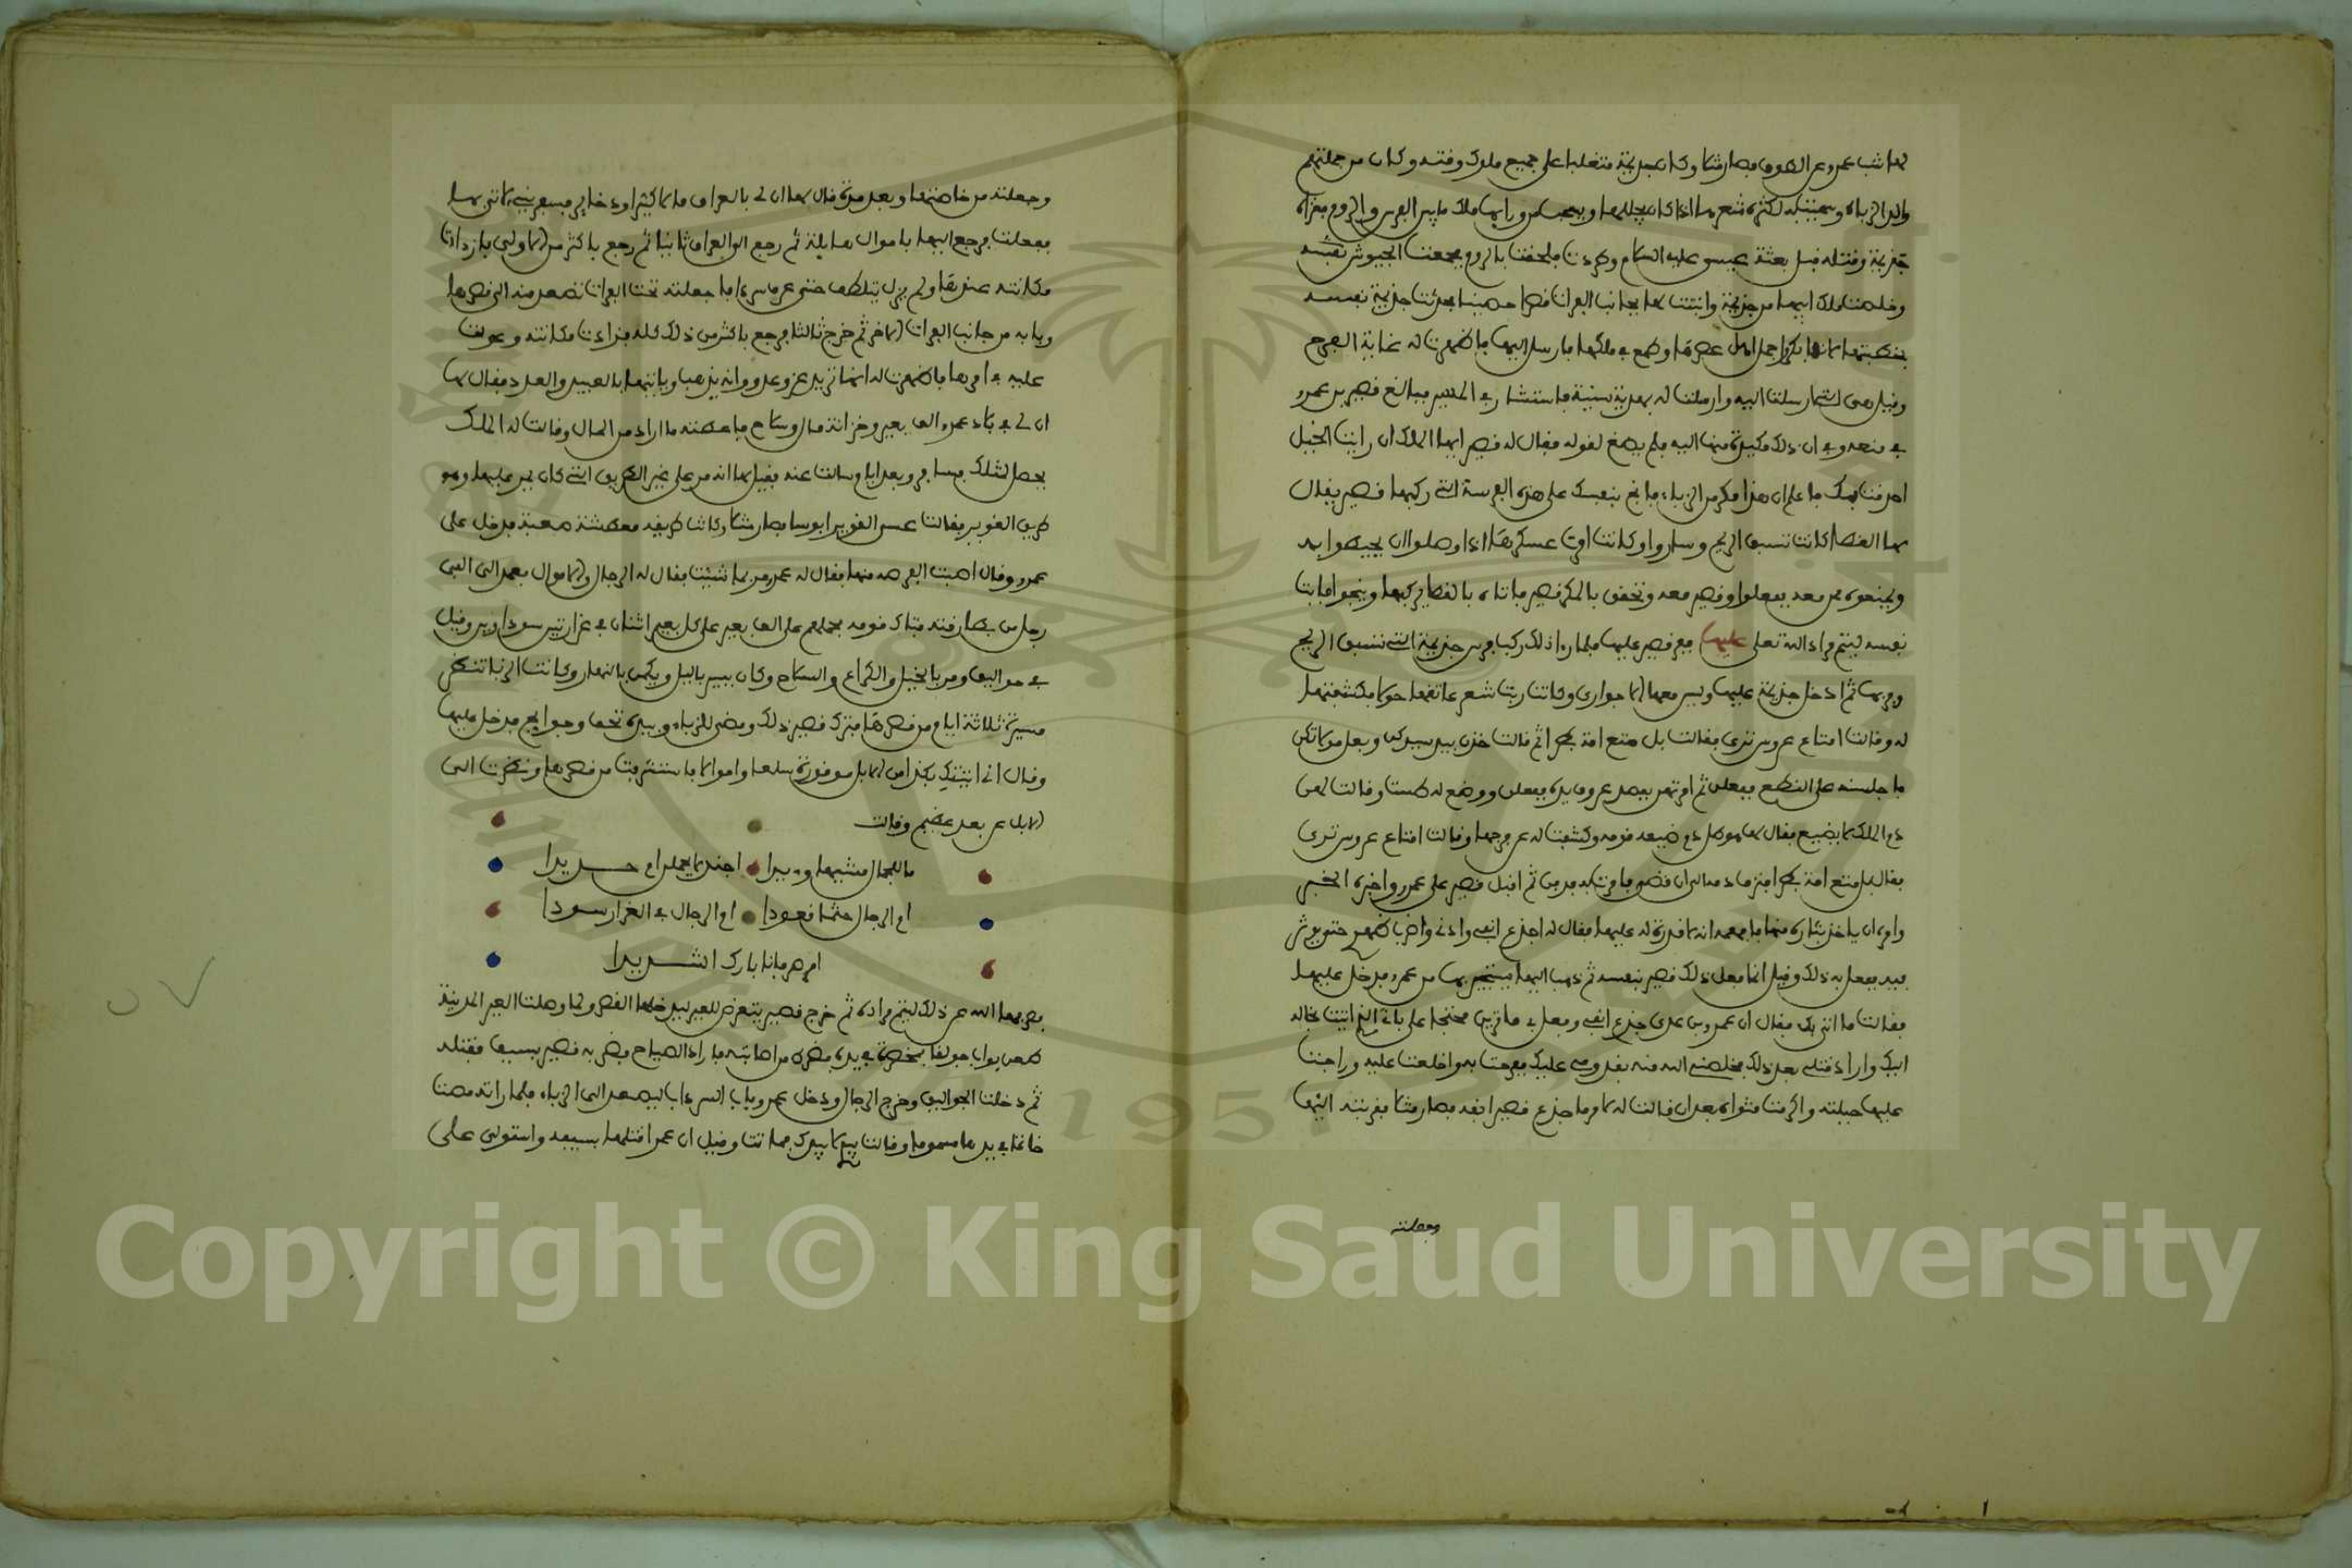 لها شب عمرو عن الطوق فصار مثلا وكان جذيمة متغلبا على جميع ملوك وقته وكان من جملتهم
والد الزباء وسميت بذلك لكثرة شعرها اذا كان يجللها وابها ملك ما بين الفرس والروم فغزاه
جذيمة وقتله قبل بعثة عيسى عليه السلام وطردت فلحقت بالروم فجمعت الجيوش
وخلصت ملك ابيها من جذيمة وابتنت لها بجانب الفرات قصرا حصينا فحدثت جذيمة نفسه
بخطبتها لانها بكرا اجمل اهل عصرها وطمع في ملكها فارسل اليها فاظهرت له غاية الفرح
وقيل هي التي ارسلت اليه وارسلت له بهدية سنية فاستشار في المسير فبالغ قصير بن عمرو
في منعه وفي ان ذلك مكيدة منها اليه فلم يصغ لقوله فقال له قصير ايها الملك ان رايت الخيل
احدقت بك فاعلم ان هذا مكر من الزباء فانج بنفسك على هذه الفرس التي ركبها قصير يقال
لها العصا كانت تسبق الريح وساروا وكانت امرت عسكرها اذا وصلوا ان يحيطوا به
ويمنعوه ممن معه ففعلوا وقصير معه وتحقق بالمكر قصير فاتاه بالعصا يركبها وينجوا فابت
نفسه ليتم مراد الله تعلى عليها ففر قصير عليها فلما راى ذلك ركب فرس جذيمة التي تسبق الريح
وفر بها ثم ادخل جذيمة عليها وليس معها الا جواري وكانت ربت شعر عانتها حولا فكشفتها
له وقالت امتاع عروس ترى فقالت بل متع امة بظرا ثم قالت خذن بيد سيدكن وبعل مولاتكن
فاجلسنه على النطع ففعلن ثم امرتهن بفصد عروق يديه ففعلن ووضع له طست وقالت لهن
دم الملك لا يضيع فقال لها هو كل دم ضيعه قومه وكشفت له عن فرجها وقالت امتاع عروس ترى
فقال بل متع امة بظرا فنزف دمه الى ان قضى فامرت به فدفن ثم اقبل قصير على عمرو واخبره الخبر
وامره ان ياخذ بثاره منها فافهمه انه لا قدرة له عليها فقال له اجدع انفي واذني واضرب ظهري حتى يوثر
فيه ففعل به ذلك وقيل انما فعل ذلك قصير بنفسه ثم ذهب اليها يستجير بها من عمرو فدخل عليها
فقالت ما اتى بك فقال ان عمرو بن عدي جدع انفي وفعل بي ما ترين محتجا علي باني الذي اتيت بخاله
اليك واراد قتلي بعد ذلك فخلصني الله منه بقدومي عليك ففرحت به واخلعت عليه وراجت
عليها حيلته واكرمت مثواه بعد ان قالت له لامر ما جدع قصير انفه فصار مثلا فقربته اليها
وجعلته
وجعلته من خاصتها وبعد مدة قال لها ان لي بالعراق مالا كثيرا وذخاير فسفريني لاتي بها
ففعلت فرجع اليها باموال هايلة ثم رجع الى العراق ثانيا ثم رجع باكثر من الاولى فازدادت
مكانته عندها ولم يزل يتلطف حتى عرف سردابا جعلته تحت الفرات تصعد منه الى قصرها
وبابه من جانب الفرات الاخر ثم خرج ثالثا فرجع باكثر من ذلك كله فزادت مكانته وعولت
عليه في امرها فاظهرت له انها تريد غزو عدو وانه يذهب وياتيها بالعبيد والعدد فقال لها
ان لي في بلاد عمرو الف بعير وخزانة مال وسلاح فاعطته ما اراد من المال وقالت له الملك
يحصل لمثلك فسافر وبعد ايام سالت عنه فقيل لها انه مر على غير الطريق التي كان يمر عليها وهو
طريق الغوير فقالت عسى الغوير ابوسا فصار مثلا وكانت طريقه معطشة صعبة فدخل على
عمرو وقال اصبت الفرصة منها فقال له عمرو مر بما شئت فقال له الرجال والاموال فعمد الى الفي
رجل من بطارقته فتاك قومه فحملهم على الف بعير على كل بعير اثنان في غرارتين سوداوين وقيل
في جواليق ومر بالخيل والكراع والسلاح وكان يسير بالليل ويكمن بالنهار وكانت الزبا تنظر
مسيرة ثلاثة ايام من قصرها فترك قصير ذلك ومضى للزباء وبيده تحف وجوايح فدخل عليها
وقال اني اتيتك بكذا من الابل موفورة سلعا واموالا فاستشرفت من قصرها ونظرت الى
الابل عن بعد عظيم وقالت
ما للجمال مشيها وءيدا اجندلا يحملن ام حديدا
ام الرجال جثما قعودا ام الرجال في الغرار سودا
ام صرفانا باردا شديدا
فصرفها الله عن ذلك ليتم مراده ثم خرج قصير يتعرض للعير ليدخلها القصر ولما وصلت العير المدينة
طعن بواب جولقا بمخصرة في يده فضرط من اصابته فاراد الصياح فضربه قصير بسيف فقتله
ثم دخلت الجواليق وخرج الرجال ودخل عمرو باب السرداب ليصعد الى الزباء فلما راته مصت
خاتما في يدها مسموما وقالت بيدي لا بيدك فماتت وقيل ان عمرا قتلها بسيفه واستولى على